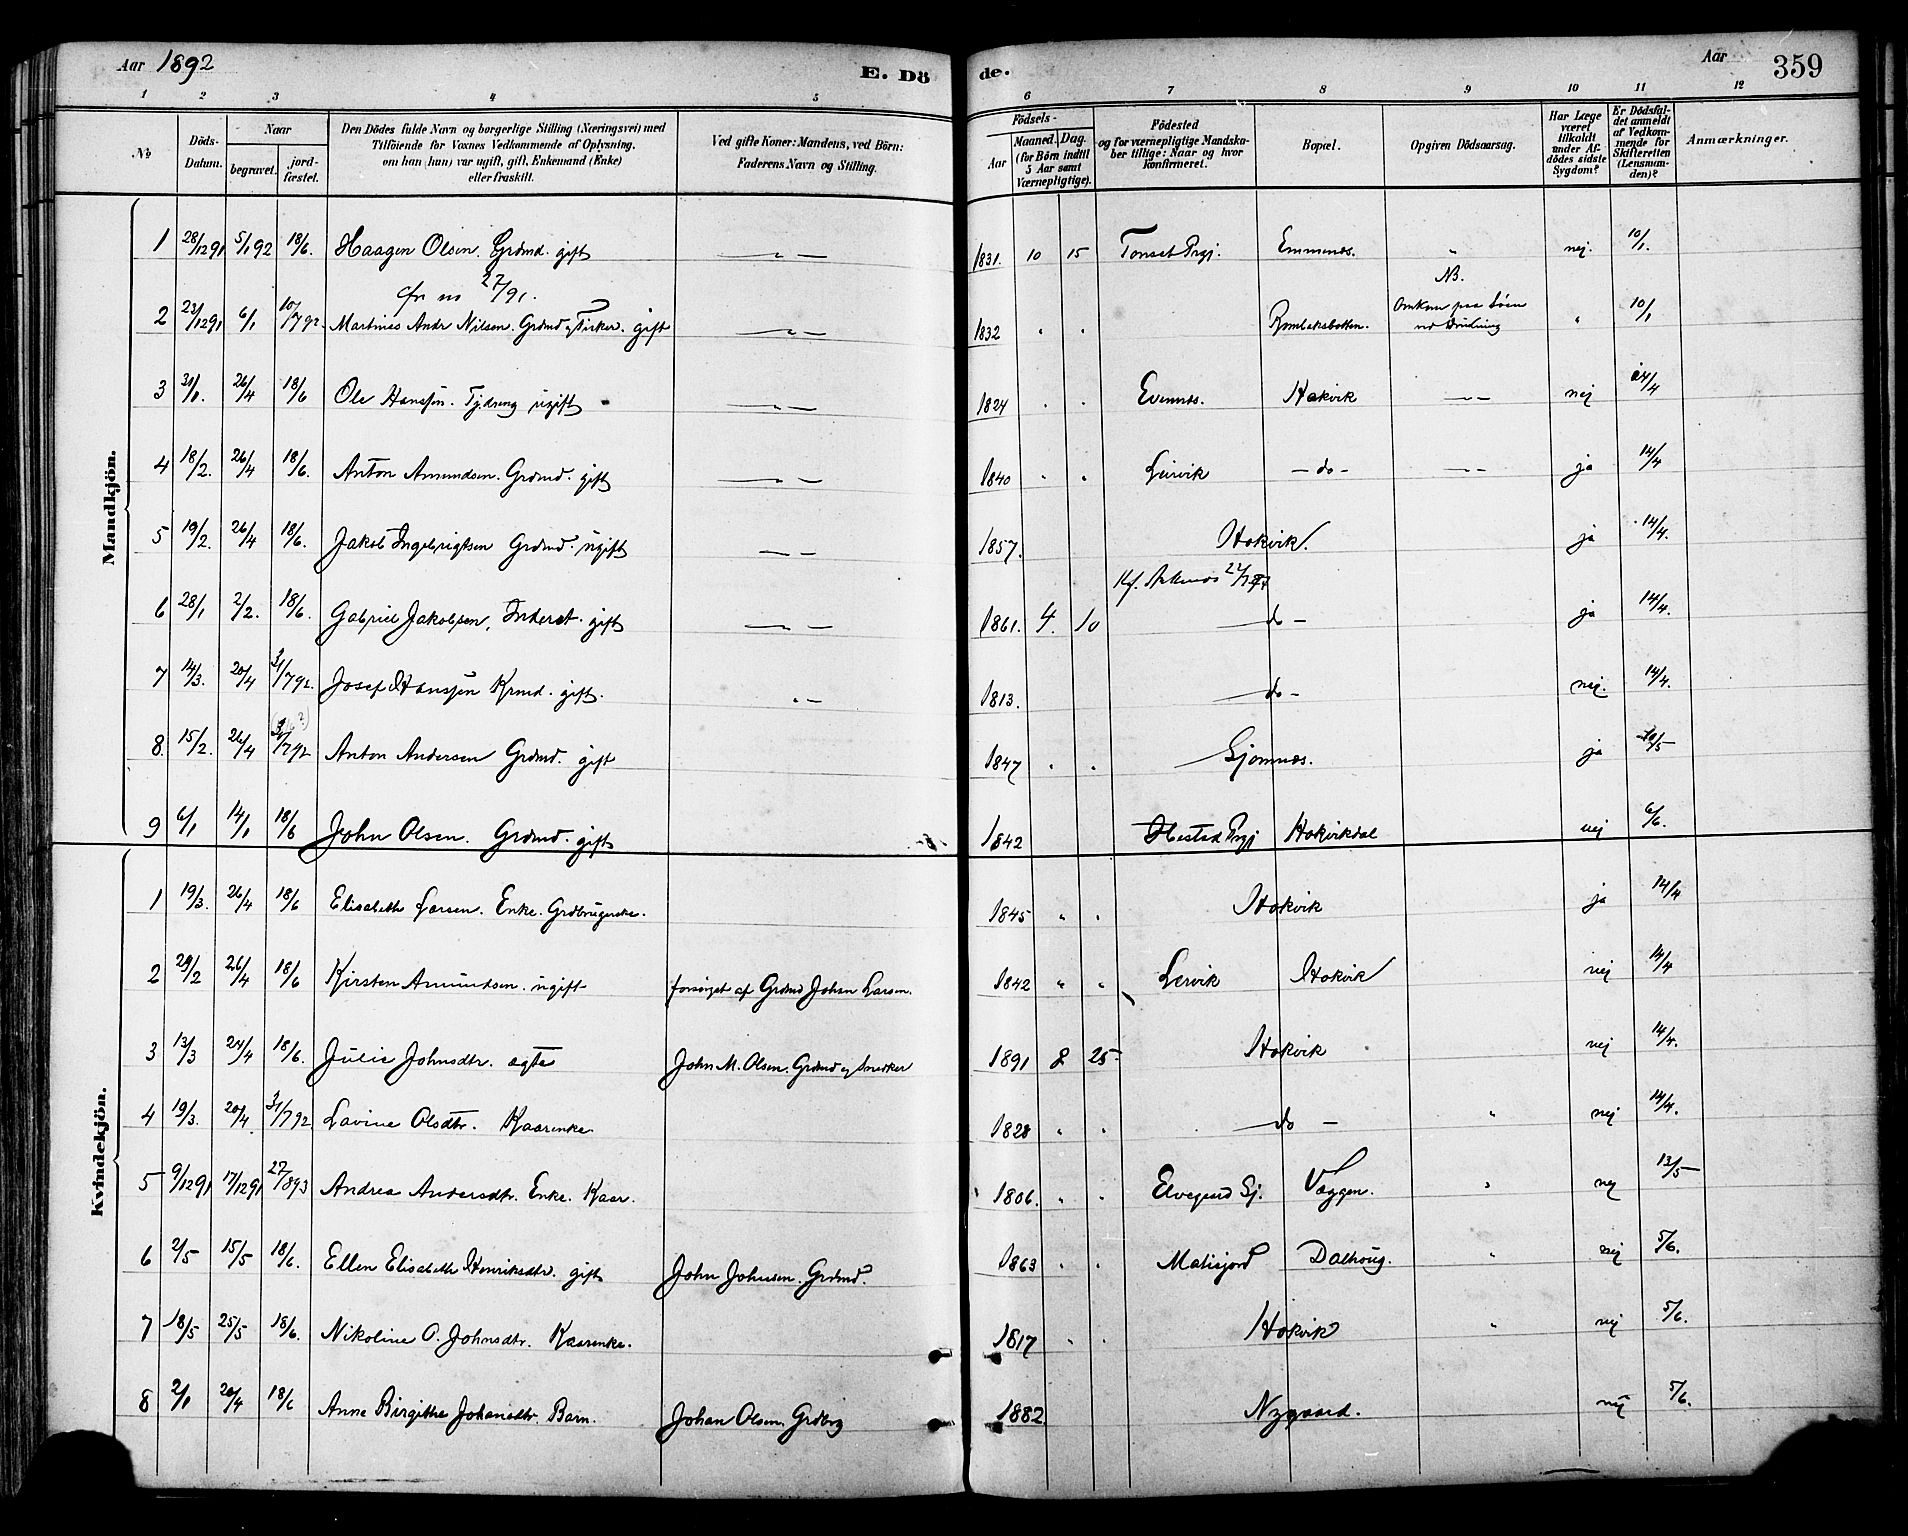 Aar 1892
E. Dö
de.
Aar
359
1 2 3 4 5 6 7 8 9 10 11 12
No
Döds-Datum.
Naar
begravet.
jord-fæstet.
Den Dödes fulde Navn og borgerlige Stilling (Næringsvei) med Tilföiende for Voxnes Vedkommende af Oplysning, om han (hun) var ugift, gift, Enkemand (Enke) eller fraskilt.
Ved gifte Koner: Mandens, ved Börn: Faderens Navn og Stilling.
Födsels-
Aar
Maaned. Dag.
(for Börn indtil 5 Aar samt Værnepligtige).
Födested og for værnepligtige Mandskaber tillige: Naar og hvor konfirmeret.
Bopæl.
Opgiven Dödsaarsag.
Har Læge været tilkaldt under Afdödes sidste Sygdom?
Er Dödsfaldet anmeldt af Vedkommende for Skifteretten (Lensmanden)?
Anmærkninger.
Mandkjön.
1 28/12 91 5/1 92 18/6. Haagen Olsen. Grdmd. gift — „ — 1831. 10 15 Tonset Prgj. Emmenes. „ nej. 10/1.
cfr no 27/91. NB.
2 23/12 91 6/1 10/7 92. Martines Andr Nilsen. Grdmd og Fisker. gift — „ — 1832 „ „ Romlaksbotten. Omkom paa Søen ved Drukning „ 10/1
3 31/1. 26/4 18/6 Ole Hanssen. Tjdreng ugift — „ — 1824 „ „ Evennes. Hakvik — „ — nej 24/4
4 18/2. 26/4 18/6. Anton Amundsen. Grdmd. gift — „ — 1840 „ „ Leirvik — do — — „ — ja 14/4
5 19/2. 26/4 18/6. Jakob Ingebrigtsen Grdmd. ugift — „ — 1857. Hakvik. ja 14/4.
6 28/1 2/2. 18/6. Gabriel Jakobsen, Inderst. gift — „ — 1861. 4. 10 — do — ja 14/4.
7 14/3. 20/4 31/7 92. Josef Hanssen Krmd. gift. „ — 1813. — do — nej. 14/4.
8. 15/2. 26/4 31/7 92 Anton Andersen Grdmd. gift 1847 „ „ Sjomnes. ja 10/5
9 6/1 14/1 18/6 John Olsen. Grdmd. gift 1842 Ibestad Prgj Hakvikdal nej 6/6.
Kvindekjön.
1 19/3. 26/4 18/6 Elisabeth Larsen. Enke. Grdbrugerske. 1845 „ „ Hakvik ja 14/4
2 29/2 26/4 18/6 Kirsten Amundsen. ugift forsörget af Grdmd Johan Larsen. 1842 „ „ Lervik Hakvik nej 14/4
3 13/3 24/4 18/6. Julie Johnsdtr. ægte John M. Olsen. Grdmd og Snedker 1891 8 25 Hakvik nej 14/4.
4 19/3. 20/4. 31/7 92 Lavine Olsdtr. Kaarenke 1828 „ „ — do — „ nej 14/4.
5 9/12 91 17/12 91 27/8 93 Andrea Andersdtr. Enke. Kaar. 1806. „ „ Elvegaard Sj. Væggen. „ nej 13/5
6 2/5 15/5 18/6. Ellen Elisabeth Henriksdtr. gift John Johnsen. Grdmd. 1863 „ „ Matisjord Dalhoug. „ nej 5/6.
7 18/5 25/5 18/6. Nikoline O. Johnsdtr. Kaarenke. 1817 „ „ Hakvik „ nej 5/6.
8 2/1 20/4 18/6 Anne Birgithe Johansdtr. Barn. Johan Olsen. Grdbrg 1882 Nygaard. nej 5/6.